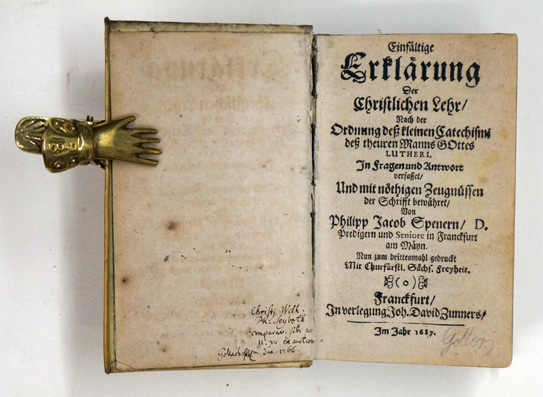 Christ. Wilh.
1766
Einfältige
Erklärung
Der
Christlichen Lehr/
Nach der
Ordnung deß kleinen Catechismi
deß theuren Manns GOttes
LUTHERI,
In Fragen und Antwort
verfasset/
Und mit nöthigen Zeugnüssen
der Schrifft bewähret/
Von
Philipp Jacob Spenern/ D.
Predigern und Seniore in Franckfurt
am Mäyn.
Nun zum drittenmahl gedruckt
Mit Churfürstl. Sächs. Freyheit.
Franckfurt/
In verlegung Joh. David Zunners/
Im Jahr 1687.